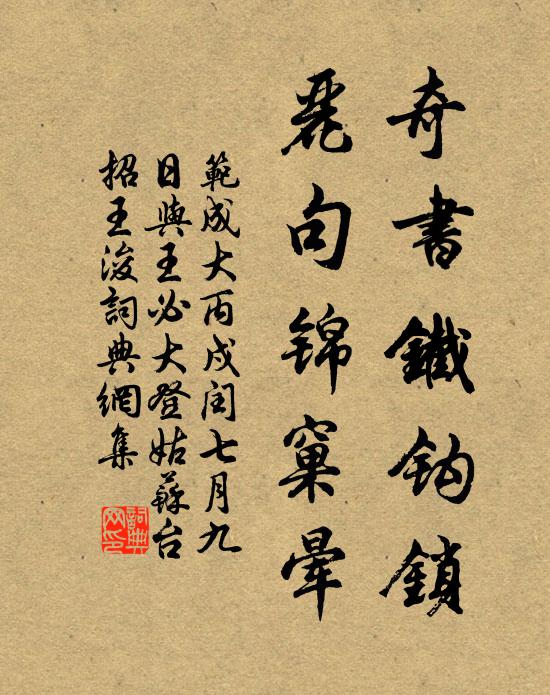 奇書鐵鈎鎖
麗句錦窠暈
範成大丙戌閏七月九
日與王必大登姑蘇台
招王浚詞典網集
詞典網印